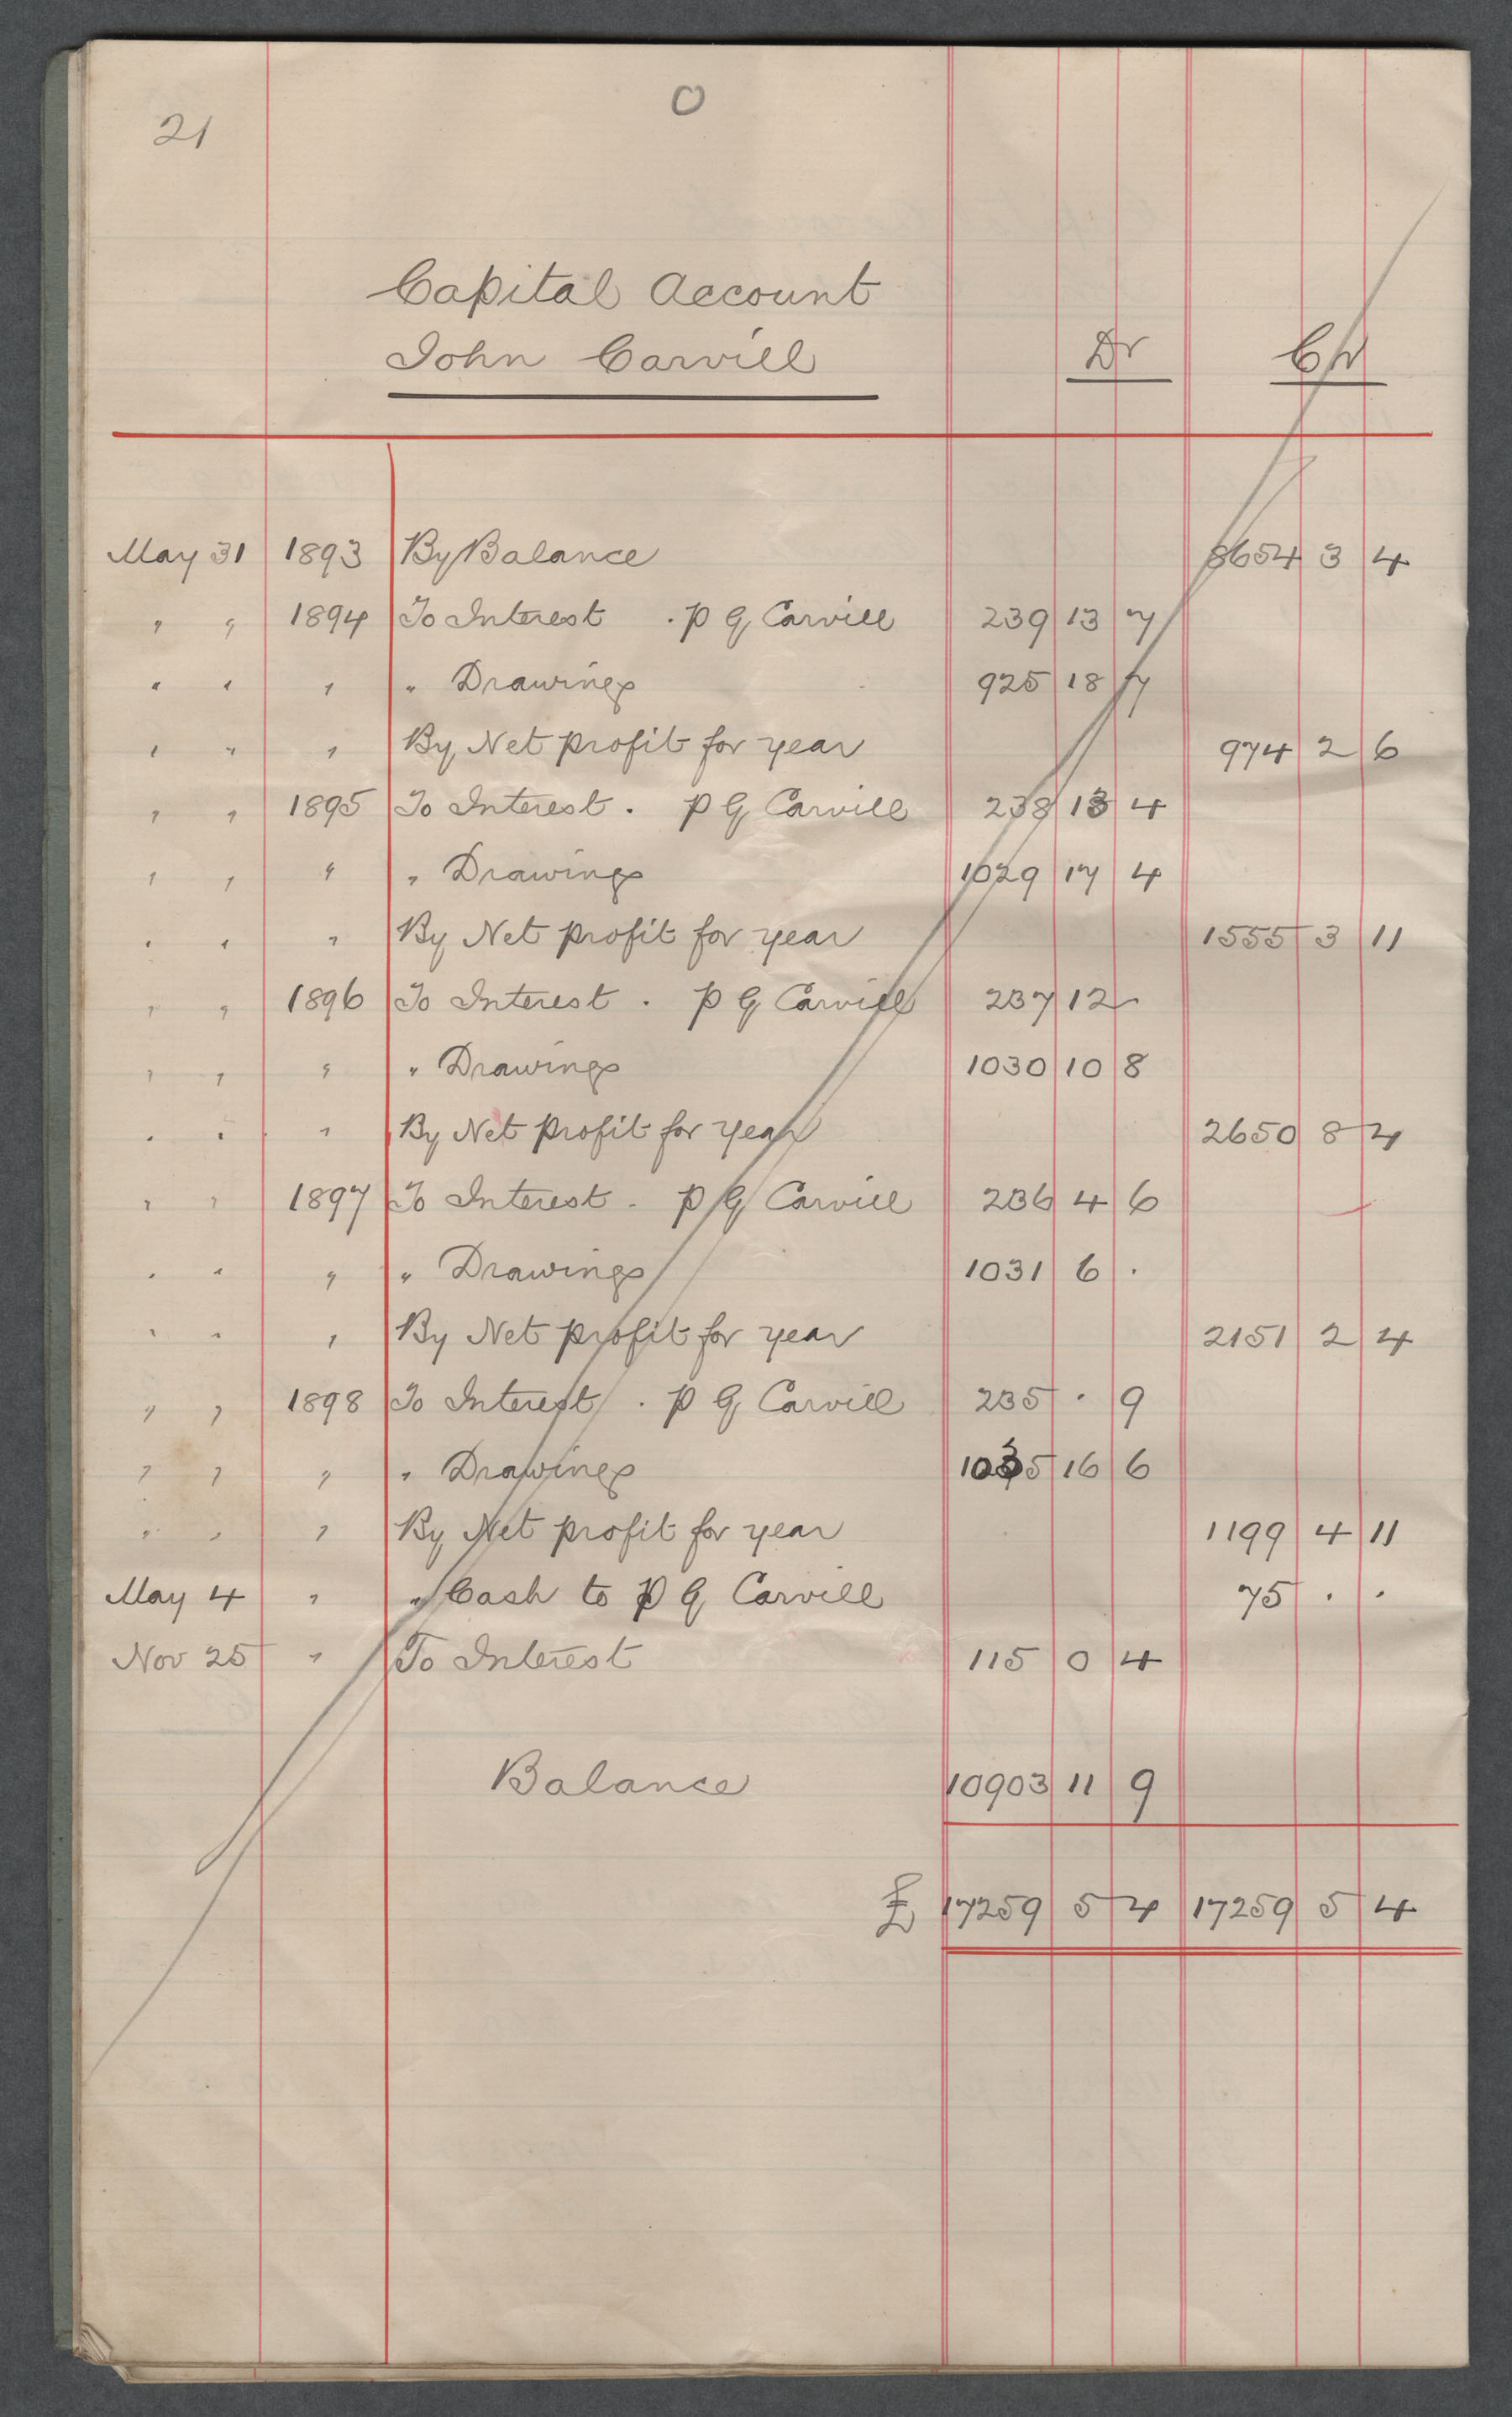 O
21
Capital Account
John Carvill Dr Cr
May 31 1893 By Balance 8654 3 4
" " 1894 To Interest . P G Carvill 239 13 7
" " " " Drawings 925 18 7
" " " By Net profit for year 974 2 6
" " 1895 To Interest . P G Carvill 238 13 4
" " " " Drawings 1029 17 4
" " " By Net profit for year 1555 3 11
" " 1896 To Interest . P G Carvill 237 12 -
" " " " Drawings 1030 10 8
" " " By Net profit for year 2650 8 4
" " 1897 To Interest . P G Carvill 236 4 6
" " " " Drawings 1031 6 .
" " " By Net profit for year 2151 2 4
" " 1898 To Interest . P G Carvill 235 . 9
" " " " Drawings 1035 16 6
" " " By Net profit for year 1199 4 11
May 4 " " Cash to P G Carvill 75 . .
Nov 25 " To Interest 115 0 4
Balance 10903 11 9
£ 17259 5 4 17259 5 4